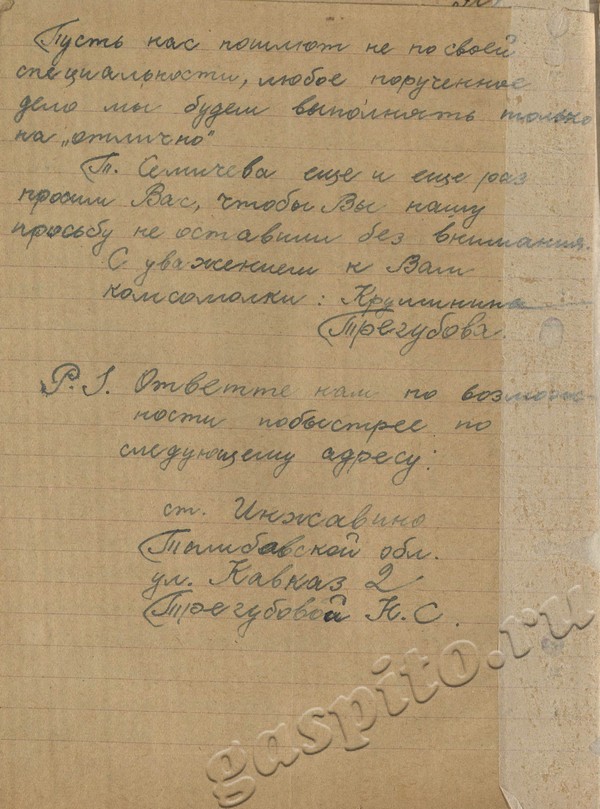 Пусть нас пошлют не по своей
специальности, любое порученное
дело мы будем выполнять только
на „отлично"
Т. Семичева еще и еще раз
просим Вас, чтобы Вы нашу
просьбу не оставили без внимания.
С уважением к Вам
комсомолки:
Трегубова.
P.S. Ответте нам по возмож-
ности побыстрее по
следующему адресу:
ст. Инжавино
Тамбовской обл.
ул. Кавказ 2
Трегубовой Н.С.
gaspito.ru